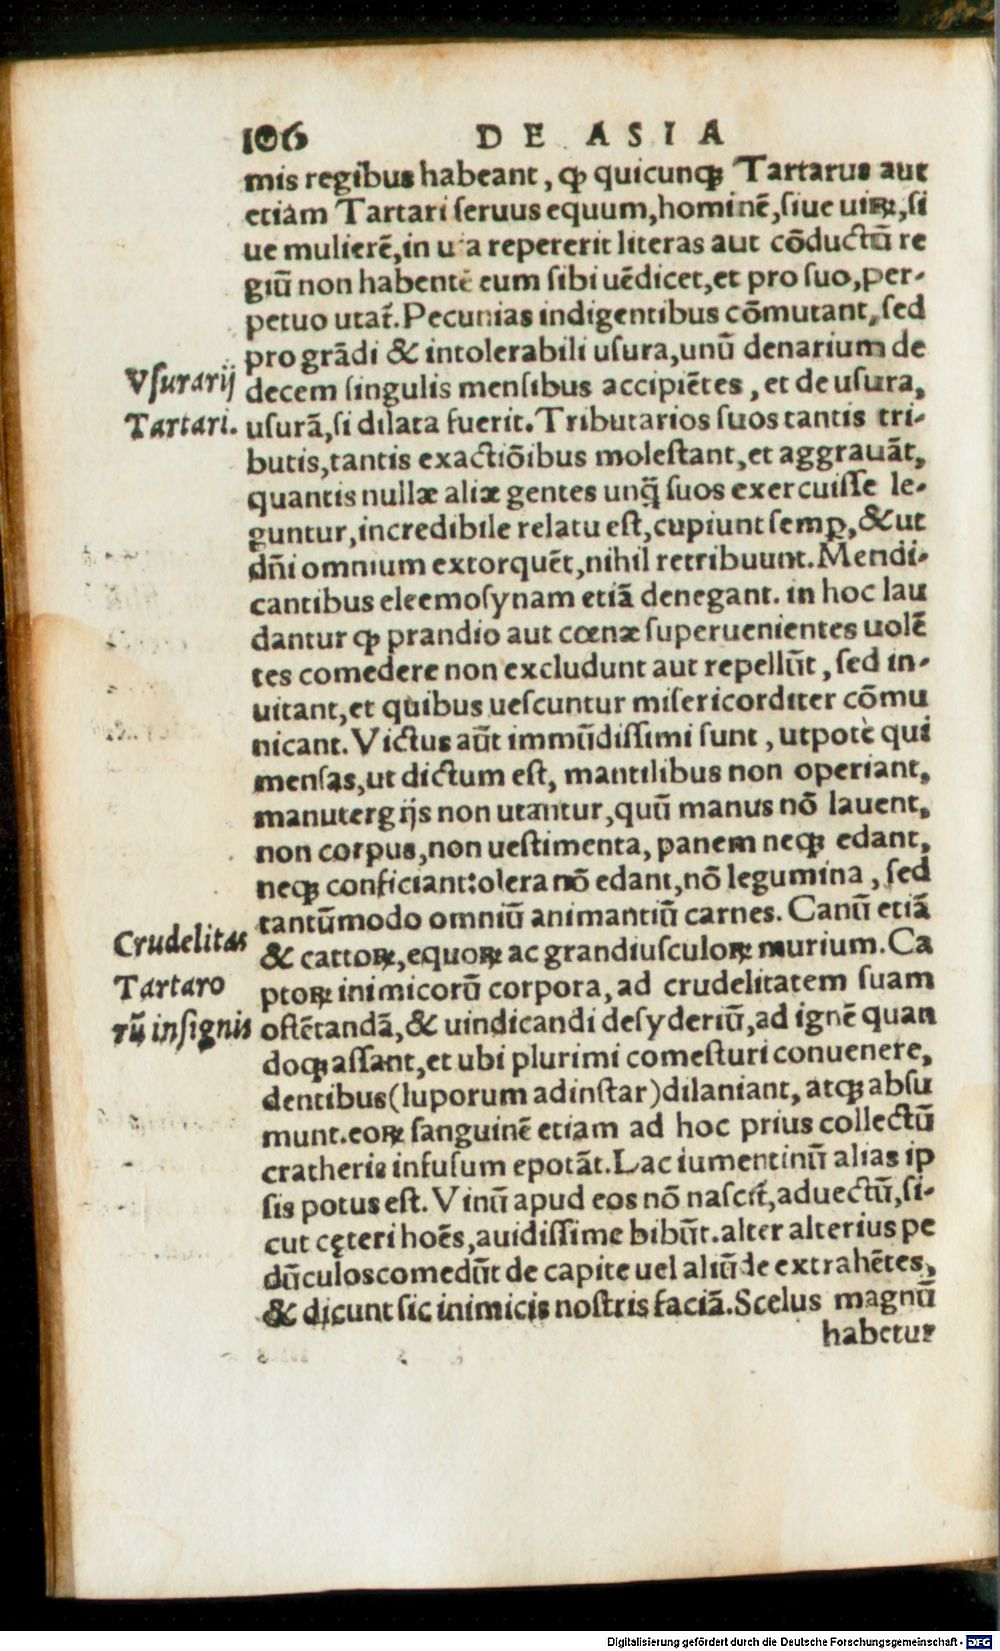 106 DE ASIA
mis regibus habeant, ꝙ quicunqꝫ Tartarus aut
etiam Tartari ſeruus equum, hominẽ, ſiue uiꝝ, ſi
ue mulierẽ, in uia repererit literas aut cõductũ re
giũ non habentẽ eum ſibi uẽdicet, et pro ſuo, per-
petuo utat̃. Pecunias indigentibus cõmutant, ſed
pro grãdi & intolerabili uſura, unũ denarium de
Vſurarij
decem ſingulis menſibus accipiẽtes, et de uſura,
Tartari.
uſurã, ſi dilata fuerit. Tributarios ſuos tantis tri-
butis, tantis exactiõibus moleſtant, et aggrauãt,
quantis nullæ aliæ gentes unq̃ ſuos exercuiſſe le-
guntur, incredibile relatu eſt, cupiunt ſemꝑ, & ut
dñi omnium extorquẽt, nihil retribuunt. Mendi-
cantibus eleemoſynam etiã denegant. in hoc lau
dantur ꝙ prandio aut cœnæ ſuperuenientes uolẽ
tes comedere non excludunt aut repellũt, ſed in-
uitant, et quibus ueſcuntur miſericorditer cõmu
nicant. Victus aũt immũdiſſimi ſunt, utpotè qui
menſas, ut dictum eſt, mantilibus non operiant,
manutergijs non utantur, quũ manus nõ lauent,
non corpus, non ueſtimenta, panem neqꝫ edant,
neqꝫ conficiant: olera nõ edant, nõ legumina, ſed
tantũmodo omniũ animantiũ carnes. Canũ etiã
Crudelitas
& cattoꝝ, equoꝝ ac grandiuſculoꝝ murium. Ca
Tartaro
ptoꝝ inimicorũ corpora, ad crudelitatem ſuam
rũ inſignis
oſtẽtandã, & uindicandi deſyderiũ, ad ignẽ quan
doqꝫ aſſant, et ubi plurimi comeſturi conuenere,
dentibus (luporum ad inſtar) dilaniant, atqꝫ abſu
munt. eoꝝ ſanguinẽ etiam ad hoc prius collectũ
crατheris infuſum epotãt. Lac iumentinũ alias ip
ſis potus eſt. Vinũ apud eos nõ naſcit̃, aduectũ, ſi-
cut cęteri hoẽs, auidiſſime bibũt. alter alterius pe
dũculos comedũt de capite uel aliũde extrahẽtes,
& dicunt ſic inimicis noſtris faciã. Scelus magnũ
habetur
Digitalisierung gefördert durch die Deutsche Forschungsgemeinschaft - DFG